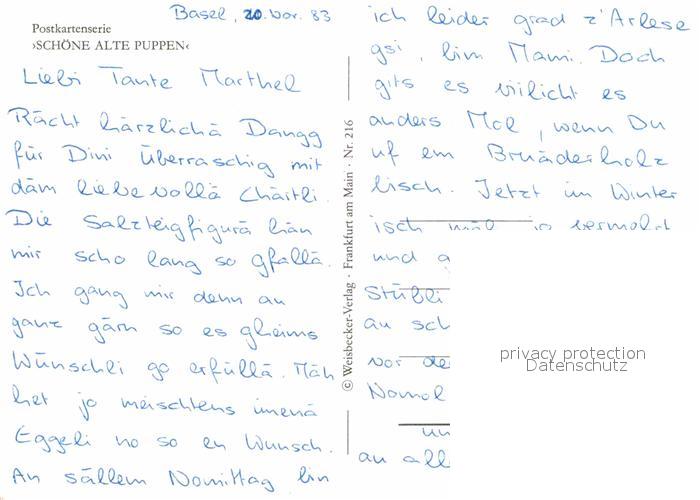 Postkartenserie
›SCHÖNE ALTE PUPPEN‹
Basel, 20. Nov. 83
Liebi Tante Marthel
Rächt härzlichä Dangg
für Dini Überraschig mit
däm liebevollä Chärtli.
Die Salzteigfigurä hän
mir scho lang so gfallä.
Ich gang mir denn au
ganz gärn so es gheims
Wünschli go erfüllä. Mäh
het jo meischtens imenä
Eggeli no so en Wunsch.
An sällem Nomittag bin
ich leider grad z'Arlese
gsi, bim Mami. Doch
gits es vilicht es
anders Mol, wenn Du
uf em Bruäderholz
bisch. Jetzt im Winter
isch
und g
Stübli
au sch
vor de
Nomol
un
an all
© Weisbecker-Verlag · Frankfurt am Main · Nr. 216
privacy protection
Datenschutz